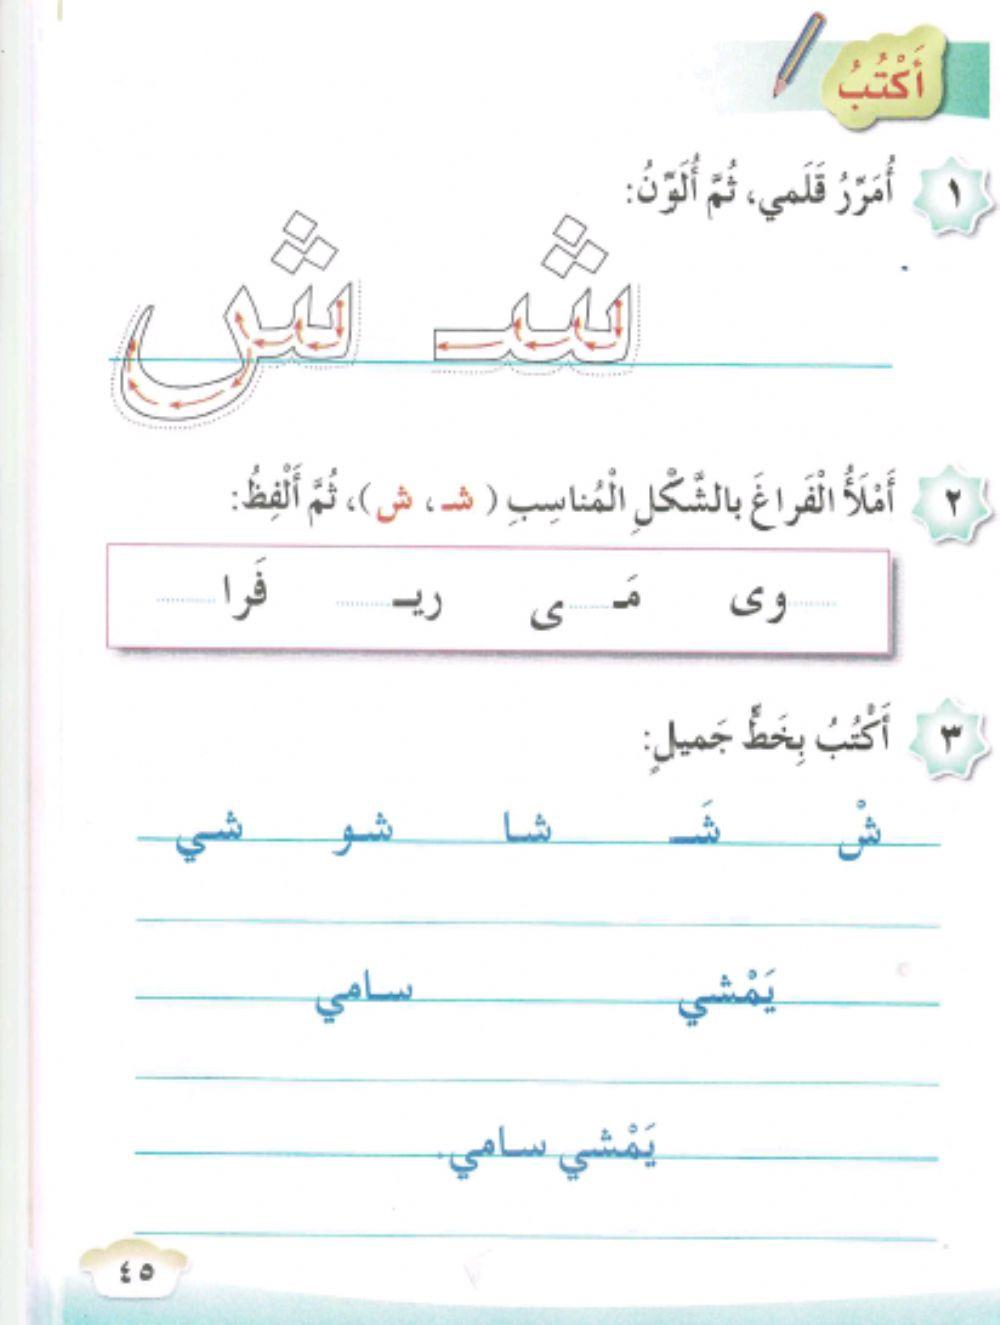 أَكْتُبُ
١ أُمَرِّرُ قَلَمي، ثُمَّ أُلَوِّنُ:
شـ ش
٢ أَمْلَأُ الْفَراغَ بالشَّكْلِ الْمُناسِبِ ( شـ ، ش )، ثُمَّ أَلْفِظُ:
......وى مَـ......ى ريـ...... فَرا......
٣ أَكْتُبُ بِخَطٍّ جَميلٍ:
شْ شَـ شا شو شي
يَمْشي سامي
يَمْشي سامي.
٤٥